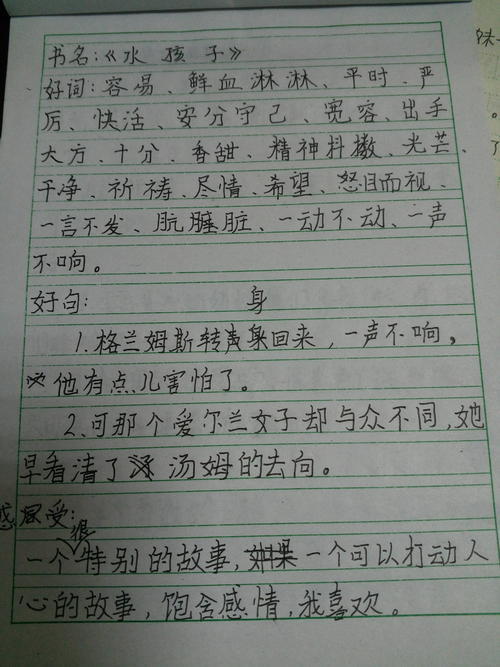 书名:《水孩子》
好词:容易、鲜血淋淋、平时、严
厉、快活、安分守己、宽容、出手
大方、十分、香甜、精神抖擞、光芒、
干净、祈祷、尽情、希望、怒目而视、
一言不发、肮脏、一动不动、一声
不响。
好句:
身
1.格兰姆斯转回来,一声不响,
他有点儿害怕了。
2.可那个爱尔兰女子却与众不同,她
早看清了汤姆的去向。
感受:
很
一个特别的故事,一个可以打动人
心的故事,饱含感情,我喜欢。